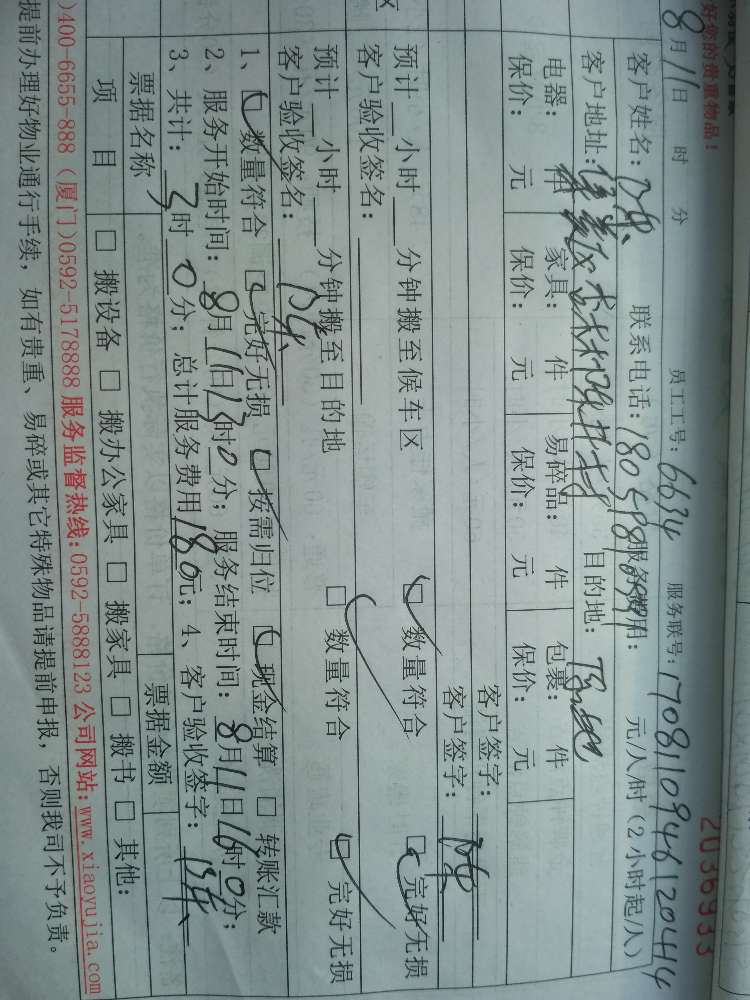 好你的贵重物品！
2036933
8月11日 时 分 员工工号：6634 服务联号：17081109461204414
客户姓名：陈 联系电话：180 服务费用： 元/人/时（2小时起/人）
客户地址： 目的地：
电器： 件 家具： 件 易碎品： 件 包裹： 件 客户签字：
保价： 元 保价： 元 保价： 元 保价： 元 客户签字：陈
区
预计 小时 分钟搬至候车区 数量符合 完好无损
客户验收签名：
预计 小时 分钟搬至目的地 数量符合 完好无损
客户验收签名：陈
1、 数量符合 完好无损 按需归位 现金结算 转账汇款
2、服务开始时间：8月11日13时0分；服务结束时间：8月11日16时0分；
3、共计：3时0分；总计服务费用180元；4、客户验收签字：陈
票据名称 票据金额
项 目 搬设备 搬办公家具 搬家具 搬书 其他：
)400-6655-888 (厦门)0592-5178888 服务监督热线：0592-5888123 公司网站：www.xiaoyujia.com
提前办理好物业通行手续，如有贵重、易碎或其它特殊物品请提前申报，否则我司不予负责。